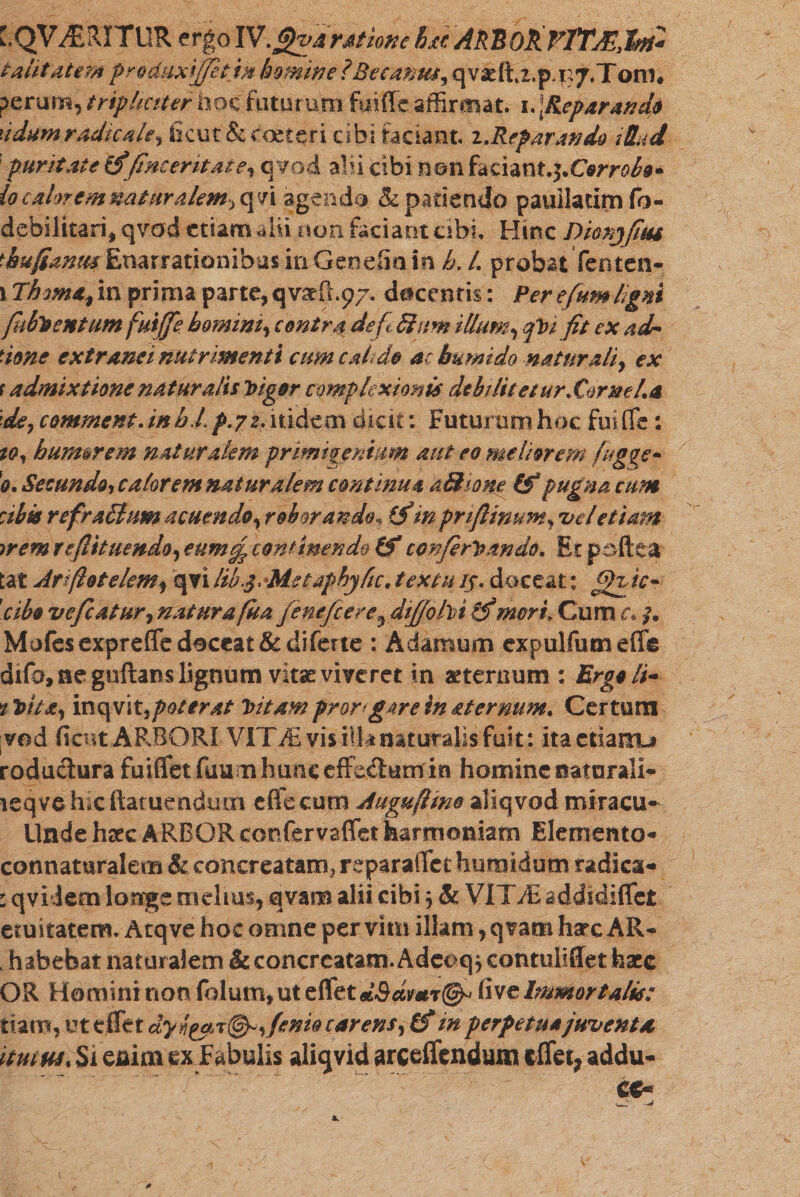 QVÆRITUR ergo IV. Qva ratione hæc ARBOR VITÆ, Im-
talitatem produxisset in homine? Becanus, qvæst.2.p.137.Tom.
perum, tripliciter hoc futurum fuisse affirmat. 1. Reparando
idum radicale, sicut & cœteri cibi faciant. 2. Reparando illud
puritate & sinceritate, qvod alii cibi non faciant.3. Corrobo-
do calorem naturalem, qvi agendo & patiendo paullatim so-
debilitari, qvod etiam alii non faciant cibi. Hinc Dionysius
thusianus Enarrationibus in Genesin in h. l. probat senten-
Thomæ, in prima parte, qvæst.97. docentis: Per esum ligni
subventum fuisse homini, contra defectum illum, qvi fit ex ad-
tione extranei nutrimenti cum calido ac humido naturali, ex
admixtione naturalis vigor complexionis debilitetur. Cornel. a
ide, comment. in h.l. p.72. itidem dicit: Futurum hoc fuisse:
humorem naturalem primigenium aut eo meliorem sugge-
o. Secundo, calorem naturalem continua actione & pugna cum
cibis refractum acuendo, roborando, & in pristinum, vel etiam
orem restituendo, eumq; continendo & conservando. Et postea
tat Aristotelem, qvi lib.3. Metaphysic. textu 15. doceat: Qvic-
cibo vescatur, natura sua senescere, dissolvi & mori. Cum c. 3.
Moses expresse doceat & diserte : Adamum expulsum esse
diso, ne gustans lignum vitæ viveret in æternum : Ergo li-
vitæ, inqvit, poterat vitam prorogare in æternum. Certum
vod sicut ARBORI VITÆ vis illa naturalis fuit: ita etiam
roductura fuisset suum hunc effectum in homine naturali-
neqve hic statuendum esse cum Augustino aliqvod miracu-
Unde hæc ARBOR conservasset harmoniam Elemento-
connaturalem & concreatam, reparasset humidum radica-
qvidem longe melius, qvam alii cibi; & VITÆ addidisset
etuitatem. Atqve hoc omne per vim illam, qvam hæc AR-
habebat naturalem & concreatam. Adeoq; contulisset hæc
OR Homini non solum, ut esset ἀθάνατ@ sive Immortalis:
tiam, ut esset ἀγήρατ@, senio carens, & in perpetua juventa
Si enim ex Fabulis aliqvid arcessendum esset, addu-
ce-